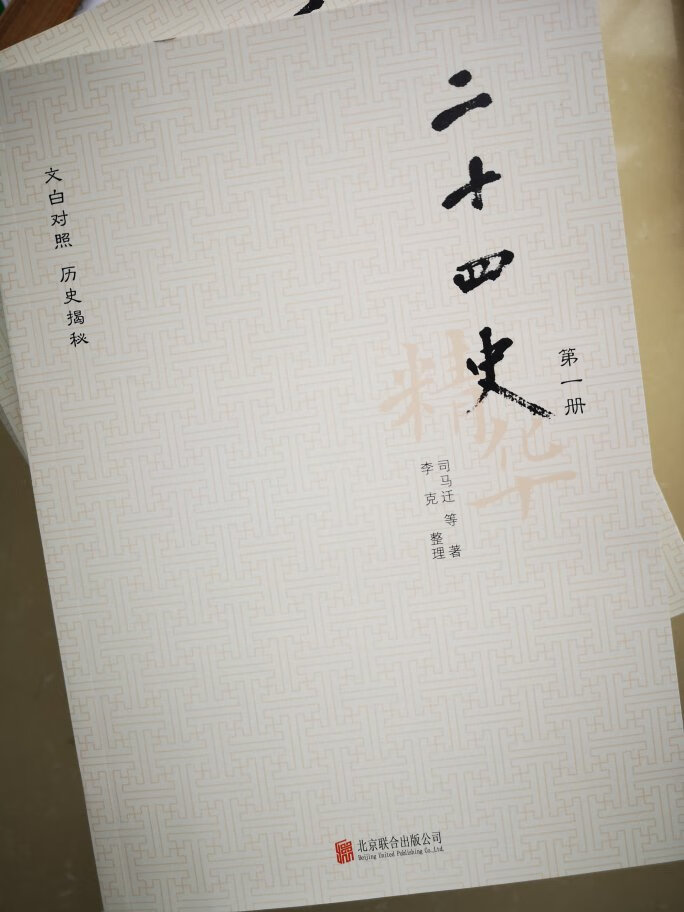 二十四史
精华
第一册
司马迁 等 著
李克 整理
文白对照 历史揭秘
北京联合出版公司
Beijing United Publishing Co.,Ltd.